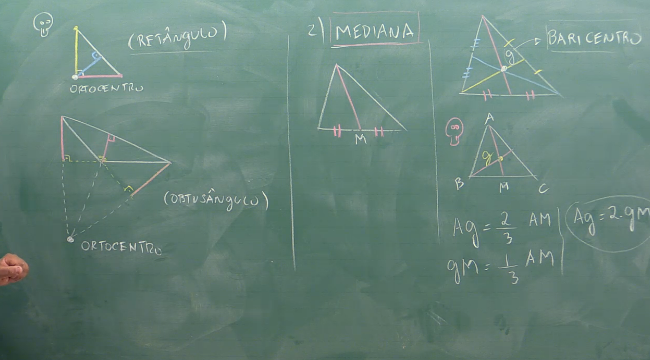 (RETÂNGULO)
ORTOCENTRO
(OBTUSÂNGULO)
ORTOCENTRO
2) MEDIANA
M
g
BARICENTRO
A
g
B M C
Ag = 2/3 AM
gM = 1/3 AM
Ag = 2·gM